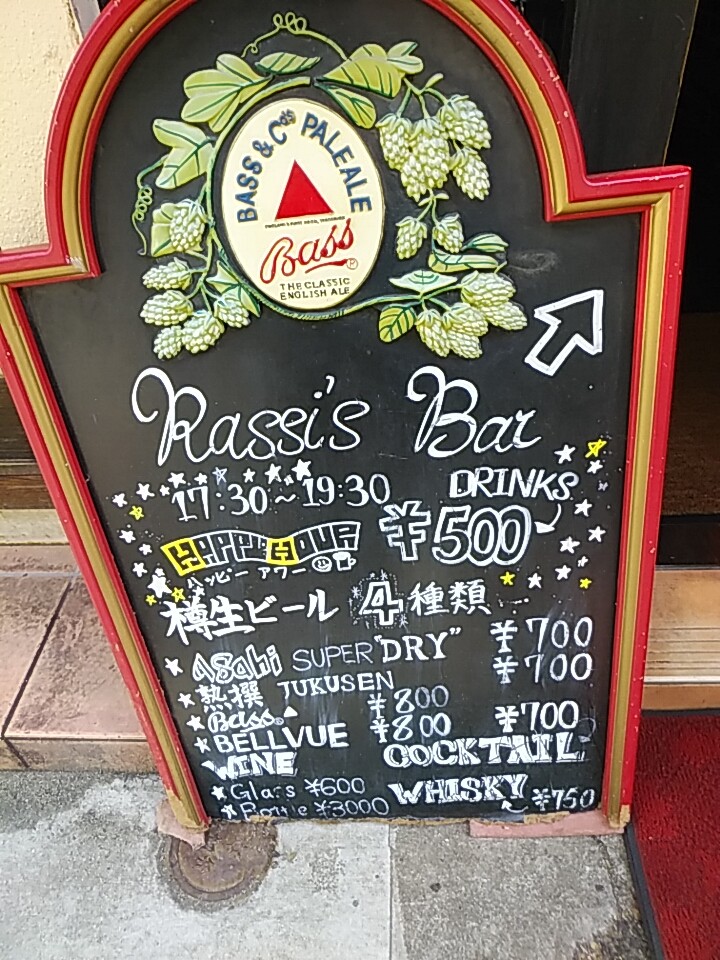 BASS & Co's PALE ALE
Bass
THE CLASSIC
ENGLISH ALE
Rassi's Bar
17:30~19:30
DRINKS
¥500
HAPPY HOUR
ハッピーアワー
樽生ビール 4種類
Asahi SUPER "DRY" ¥700
熟撰 JUKUSEN ¥700
Bass ¥800
BELLVUE ¥800
¥700
WINE
COCKTAIL
Glass ¥600
WHISKY
Bottle ¥3000
¥750